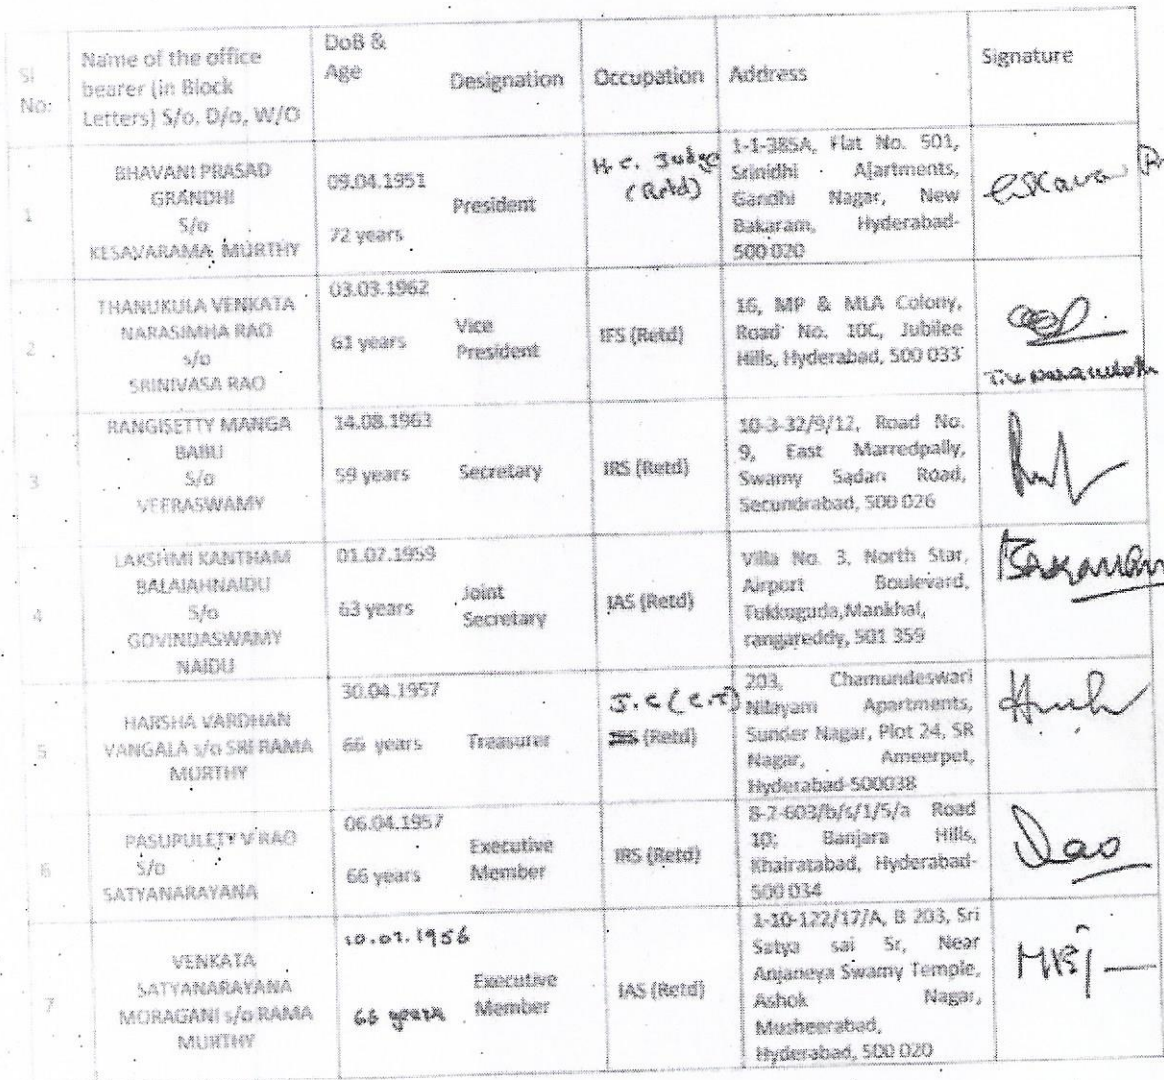 Sl No:
Name of the office bearer (in Block Letters) S/o. D/o, W/O
DoB & Age
Designation
Occupation
Address
Signature
1
BHAVANI PRASAD
GRANDHI
S/o
KESAVARAMA MURTHY
09.04.1951
72 years
President
H.C. Judge
(Retd)
1-1-385A, Flat No. 501,
Srinidhi Ajartments,
Gandhi Nagar, New
Bakaram, Hyderabad-
500 020
2
THANUKULA VENKATA
NARASIMHA RAO
s/o
SRINIVASA RAO
03.03.1962
61 years
Vice
President
IFS (Retd)
16, MP & MLA Colony,
Road No. 10C, Jubilee
Hills, Hyderabad, 500 033
3
RANGISETTY MANGA
BABU
S/o
VEERASWAMY
14.08.1963
59 years
Secretary
IRS (Retd)
10-3-32/9/12, Road No.
9, East Marredpally,
Swamy Sadan Road,
Secundrabad, 500 026
4
LAKSHMI KANTHAM
BALAIAHNAIDU
S/o
GOVINDASWAMY
NAIDU
01.07.1959
63 years
Joint
Secretary
IAS (Retd)
Villa No. 3, North Star,
Airport Boulevard,
Tukkuguda,Mankhal,
rangareddy, 501 359
5
HARSHA VARDHAN
VANGALA s/o SRI RAMA
MURTHY
30.04.1957
66 years
Treasurer
J.C (C.T)
(Retd)
203, Chamundeswari
Nilayam Apartments,
Sunder Nagar, Plot 24, SR
Nagar, Ameerpet,
Hyderabad-500038
6
PASUPULETY V RAO
S/o
SATYANARAYANA
06.04.1957
66 years
Executive
Member
IRS (Retd)
8-2-603/b/s/1/5/a Road
10; Banjara Hills,
Khairatabad, Hyderabad-
500 034
Rao
7
VENKATA
SATYANARAYANA
MORAGANI s/o RAMA
MURTHY
10.07.1956
66 years
Executive
Member
IAS (Retd)
1-10-122/17/A, B 203, Sri
Satya sai Sr, Near
Anjaneya Swamy Temple,
Ashok Nagar,
Musheerabad,
Hyderabad, 500 020